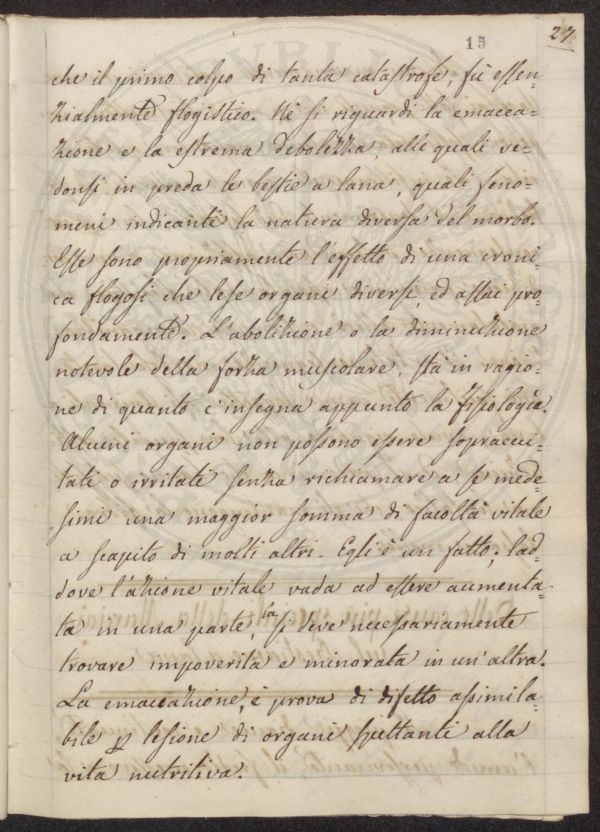 15
27
che il primo colpo di tanta catastrofe, fù essen=
zialmente flogistico. Nè si riguardi la emacea=
zione e la estrema debolezza, alle quali ve=
donsi in preda le bestie a lana, quali feno=
meni indicanti la natura diversa del morbo.
Esse sono propriamente l'effetto di una croni=
ca flogosi che lese organi diversi, ed assai pro=
fondamente. L'abolizione o la diminuzione
notevole della forza muscolare, stà in ragio=
ne di quanto c'insegna appunto la fisiologia.
Alcuni organi non possono essere sopraecci=
tati o irritati senza richiamare a se mede=
simi una maggior somma di facoltà vitale
a scapito di molti altri. Egli è un fatto; lad=
dove l'azione vitale vada ad essere aumenta=
ta in una parte, si deve necessariamente
trovare impoverita e minorata in un'altra.
La emaceazione, è prova di difetto assimila=
bile p lesione di organi spettanti alla
vita nutritiva.